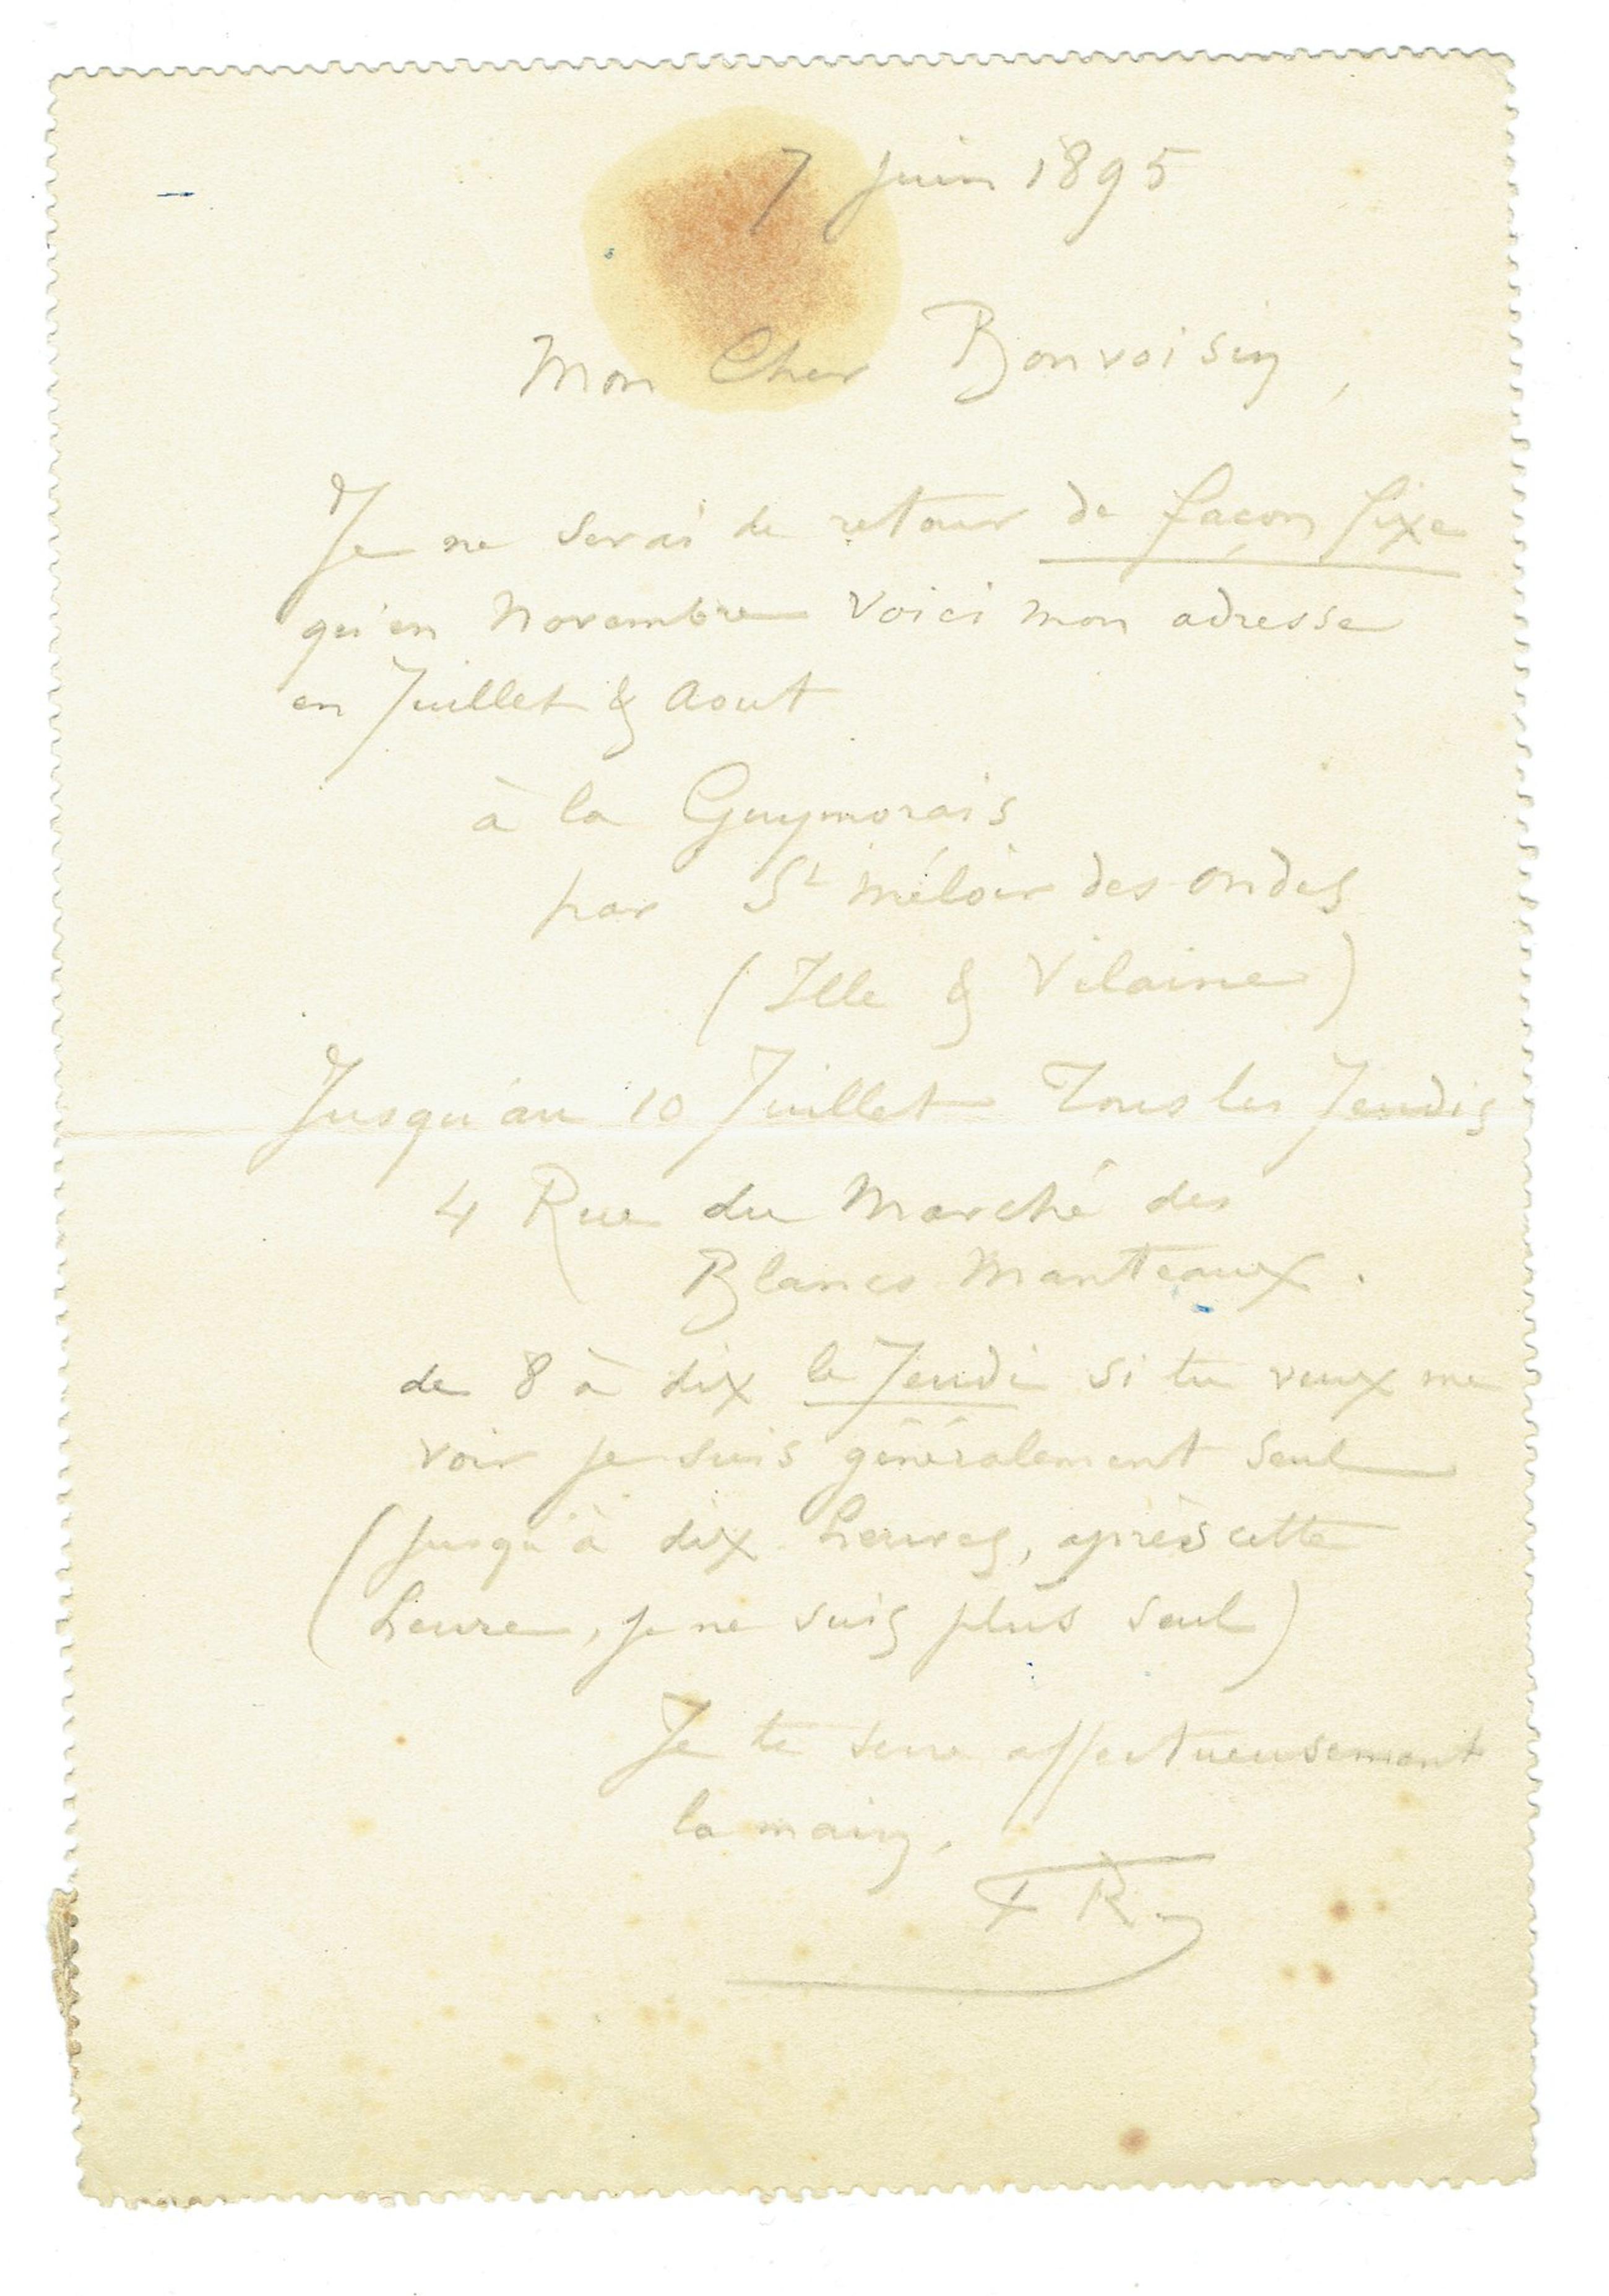 7 juin 1895
Mon Cher Bonvoisin,
Je ne serai de retour de façon fixe
qu'en Novembre Voici mon adresse
en Juillet & Aout
à la Guymorais
par St Méloir des ondes
(Ille & Vilaine)
Jusqu'au 10 Juillet Tous les Jeudis
4 Rue du Marché des
Blancs Manteaux.
de 8 à dix le Jeudi si tu veux me
voir je suis généralement seul
(jusqu'à dix heures, après cette
heure, je ne suis plus seul)
Je te serre affectueusement
la main,
FR